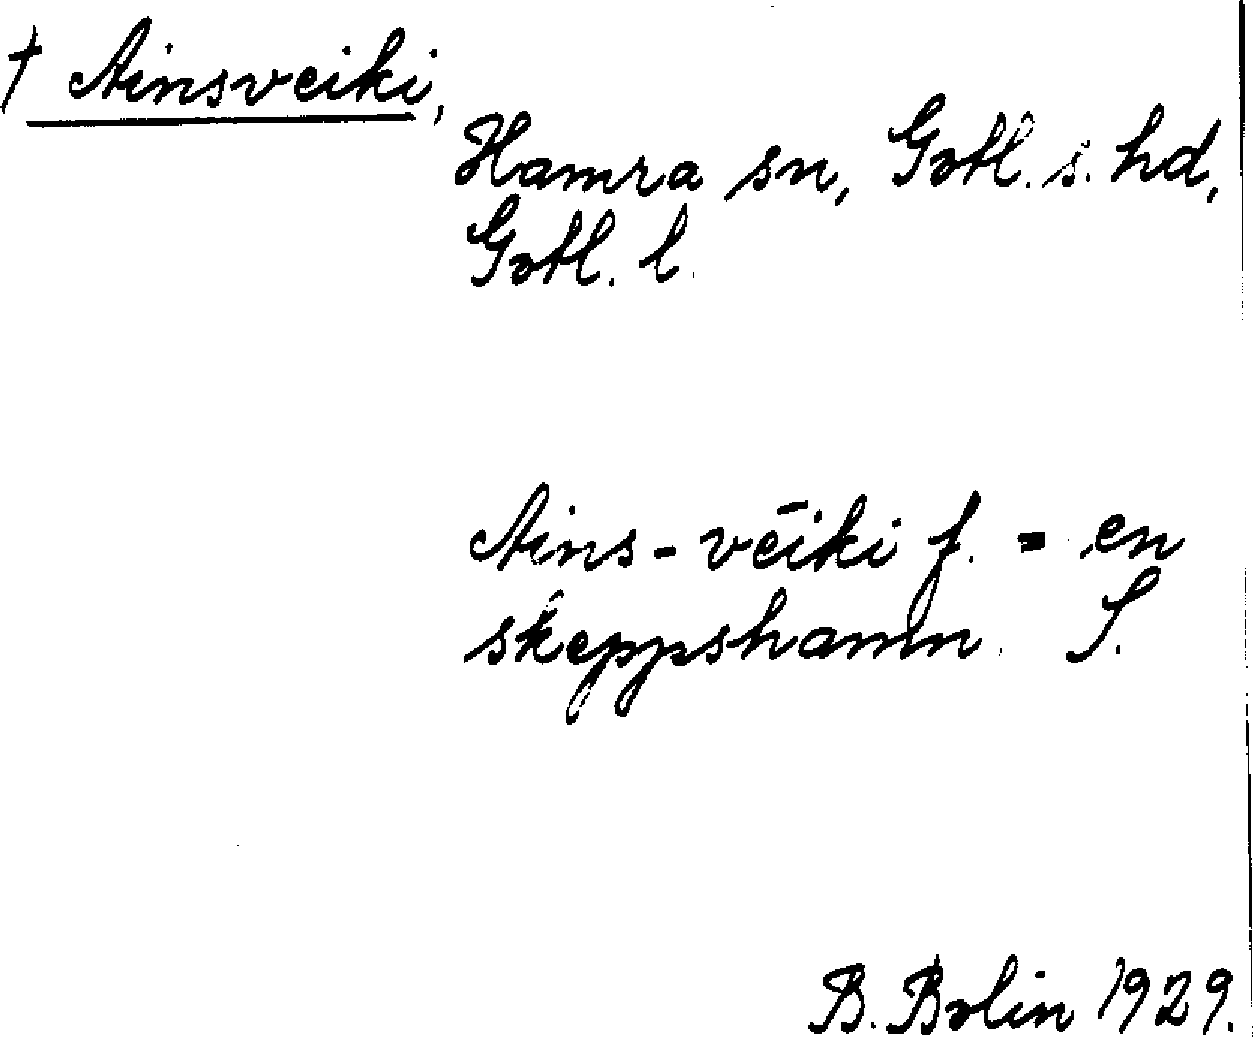 † Ainsveiki,
Hamra sn, Gotl. s. hd,
Gotl. l.
Ains-vēiki f. = en
skeppshamn. S.
B. Bolin 1929.